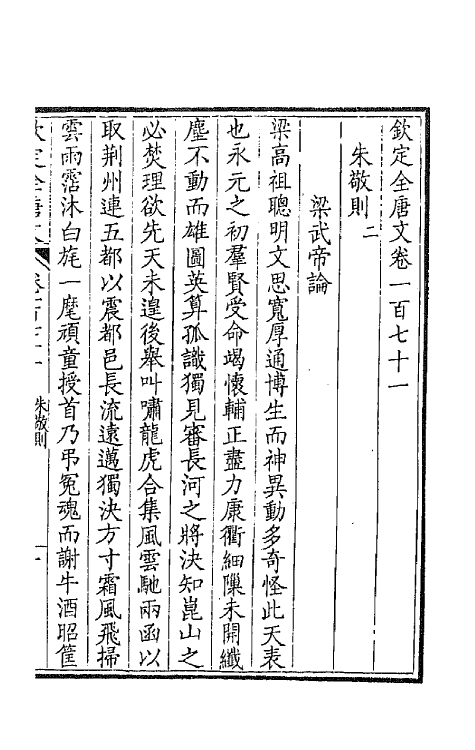 欽定全唐文卷一百七十一
朱敬則二
梁武帝論
梁高祖聰明文思寬厚通博生而神異動多奇怪此天表
也永元之初羣賢受命竭懷輔正盡力康衢細隟未開纖
塵不動而雄圖英算孤識獨見審長河之將決知崑山之
必焚理欲先天未遑後舉叫嘯龍虎合集風雲馳兩函以
取荆州連五都以震都邑長流遠邁獨決方寸霜風飛掃
雲雨霑沐白旄一麾頑童授首乃弔冤魂而謝牛酒昭筐
欽定全唐文
朱敬則
一